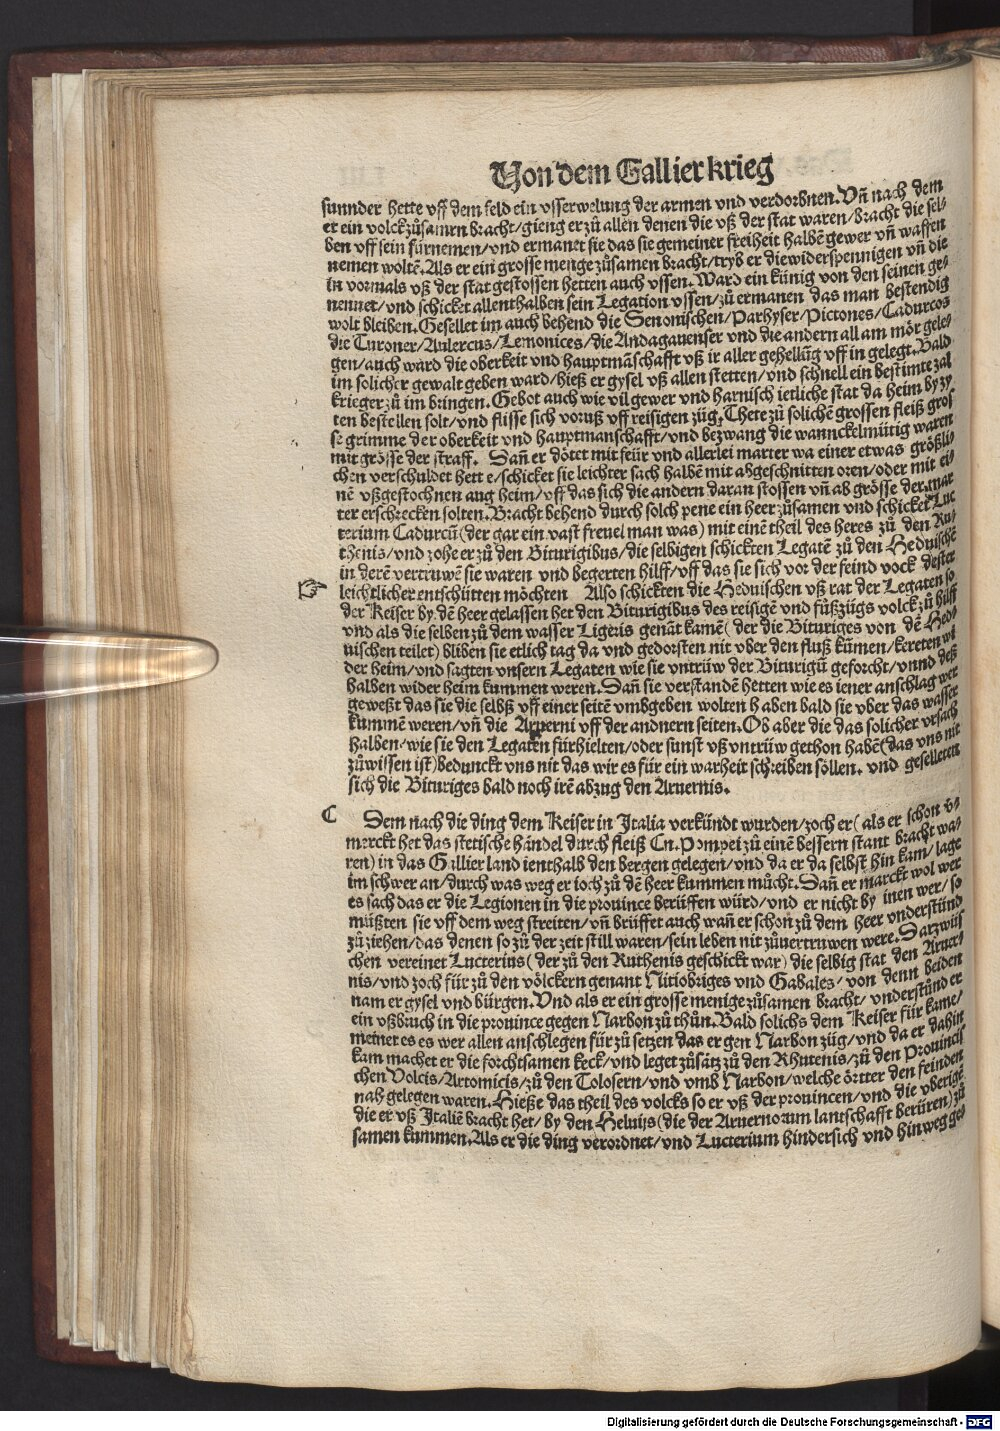 Von dem Gallier krieg
sunnder hette vff dem feld ein vsserwelung der armen vnd verdorbnen. Vñ nach dem
er ein volck zůsamen bracht/gieng er zů allen denen die vß der stat waren/bracht die sel⸗
ben vff sein fürnemen/vnd ermanet sie das sie gemeiner freiheit halbē gewer vñ waffen
nemen woltē. Als er ein grosse menge zůsamen bracht/tryb er die widerspennigen vñ die
in vormals vß der stat gestossen hetten auch vssen. Ward ein künig von den seinen ge⸗
nennet/vnd schicket allenthalben sein Legation vssen/zů ermanen das man bestendig
wolt bleiben. Gesellet im auch behend die Senonischen/Parhyser/Pictones/Cadurcos
die Turoner/Aulercus/Lemonices/die Andagauenser vnd die andern all am mör gele⸗
gen/auch ward die oberkeit vnd hauptmāschafft vß ir aller gehellūg vff in gelegt. Bald
im solicher gewalt geben ward/hieß er gysel vß allen stetten/vnd schnell ein bestimte zal
krieger zů im bringen. Gebot auch wie vil gewer vnd harnisch ietliche stat da heim by zy
ten besteilen solt/vnd flisse sich voruß vff reisigen züg. Thete zů solichē grossen fleiß gros
se grimme der oberkeit vnd hauptmanschafft/vnd bezwang die wannckelmütig waren
mit grösse der straff. Dañ er dötet mit feür vnd allerlei marter wa einer etwas größli⸗
chen verschuldet hette/schicket sie leichter sach halbē mit abgeschnitten oren/oder mit ei⸗
nē vßgestochnen aug heim/vff das sich die andern daran stossen vñ ab grösse der mar
ter erschrecken solten. Bracht behend durch solch pene ein heer zůsamen vnd schicket Luc
terium Cadurcū(der gar ein vast freuel man was) mit einē theil des heres zů den Ru⸗
thenis/vnd zohe er zů den Biturigibus/die selbigen schickten Legatē zů den Heduischē
in derē vertruwē sie waren vnd begerten hilff/vff das sie sich vor der feind vock dester
leichtlicher entschütten möchten Also schickten die Heduischen vß rat der Legaten so
der Keiser by dē heer gelassen het den Biturigibus des reisigē vnd fůßzügs volck zů hilff
vnd als die selben zů dem wasser Ligeris genāt kamē( der die Bituriges von dē Hed⸗
uischen teilet) bliben sie etlich tag da vnd gedorsten nit vber den fluß kūmen/kereten wi
der heim/vnd sagten vnsern Legaten wie sie vntrüw der Biturigū geforcht/vnnd deß
halben wider heim kummen weren. Dañ sie verstandē hetten wie es iener anschlag wer
geweßt das sie die selbß vff einer seitē vmbgeben wolten haben bald sie vber das wasser
kummē weren/vñ die Aruerni vff der anndern seiten. Ob aber die das solicher vrsach
halben/wie sie den Legaten fürhielten/oder sunst vß vntrüw gethon habē(das vns nit
zůwissen ist)bedunckt vns nit das wir es für ein warheit schreiben söllen. vnd geselleten
sich die Bituriges bald noch irē abzug den Aruernis.
C Dem nach die ding dem Keiser in Italia verkündt wurden/zoch er( als er schon v⸗
merckt het das stetische händel durch fleiß Cn. Pompei zů einē bessern stant bracht wa⸗
ren) in das Gallier land ienthalb den bergen gelegen/vnd da er da selbst hin kam/lage
im schwer an/durch was weg er ioch zů dē heer kummen můcht. Dañ er marckt wol wer
es sach das er die Legionen in die prouince berüffen würd/vnd er nicht by inen wer/so
müßten sie vff dem weg streiten/vñ brüffet auch wañ er schon zů dem heer vnderstünd
zů ziehen/das denen so zů der zeit still waren/sein leben nit zůuertruwen were. Darzwüs
chen vereinet Lucterius( der zů den Ruthenis geschickt war) die selbig stat den Aruer⸗
nis/vnd zoch für zů den völckern genant Nitiobriges vnd Gabales/ von denn beiden
nam er gysel vnd bürgen. Vnd als er ein grosse menige zůsamen bracht/ vnderstünd er
ein vßbruch in die prouince gegen Narbon zů thůn. Bald solichs dem Keiser für kame/
meinet es es wer allen anschlegen für zů setzen das er gen Narbon züg/vnd da er dahin
kam machet er die forchtsamen keck/vnd leget zůsätz zů den Rhutenis/zů den Prouincis
chen Volcis/Artomicis/zů den Tolosern/vnd vmb Narbon/welche örtter den feinden
nah gelegen waren. Hieße das theil des volcks so er vß der prouincen/vnd die vberigē
die er vß Italiē bracht het/ by den Heluijs(die der Aruernorum lantschafft berüren)zů
samen kummen. Als er die ding verordnet/vnd Lucterium hindersich vnd hinweg ge⸗
Digitalisierung gefördert durch die Deutsche Forschungsgemeinschaft - DFG